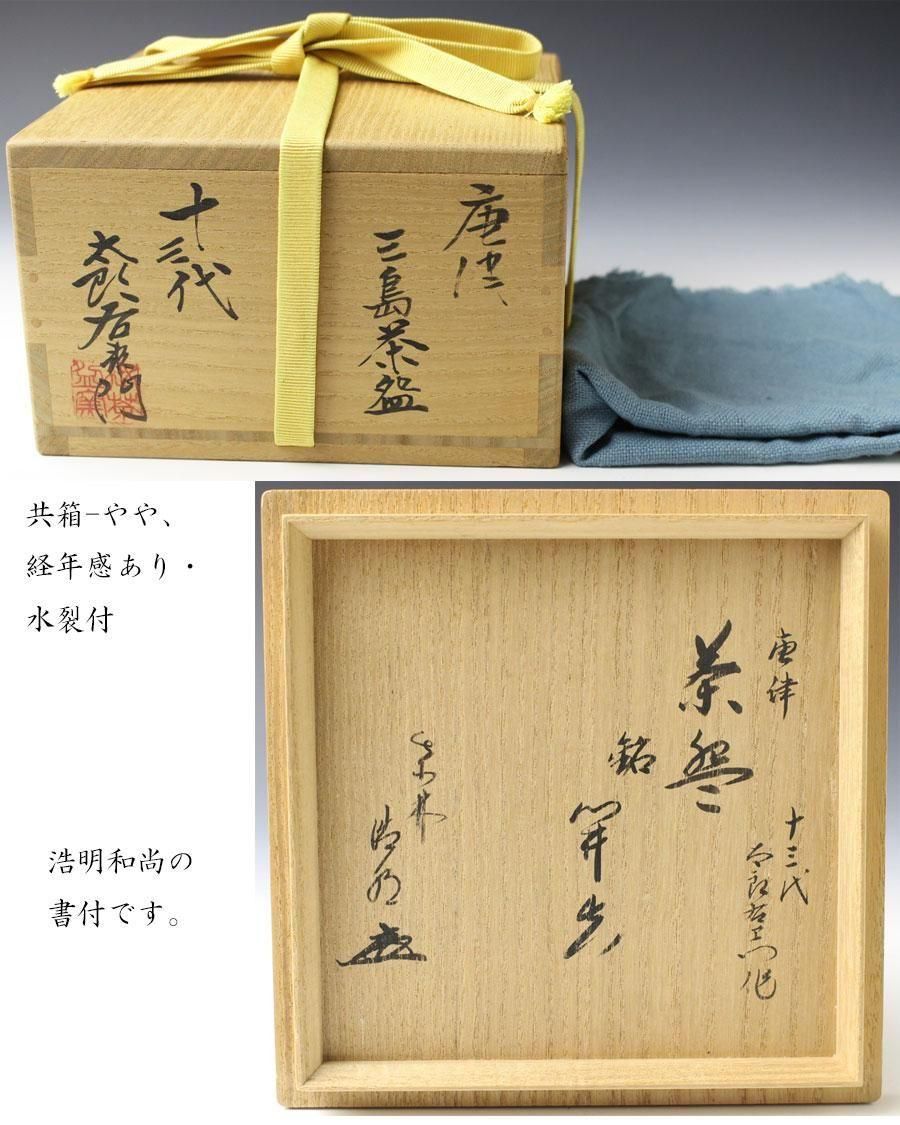 唐津
三島茶盌
十三代
太郎右衛門
共箱−やや、
経年感あり・
水裂付
浩明和尚の
書付です。
唐津
十三代
太郎右衛門作
茶盌
銘